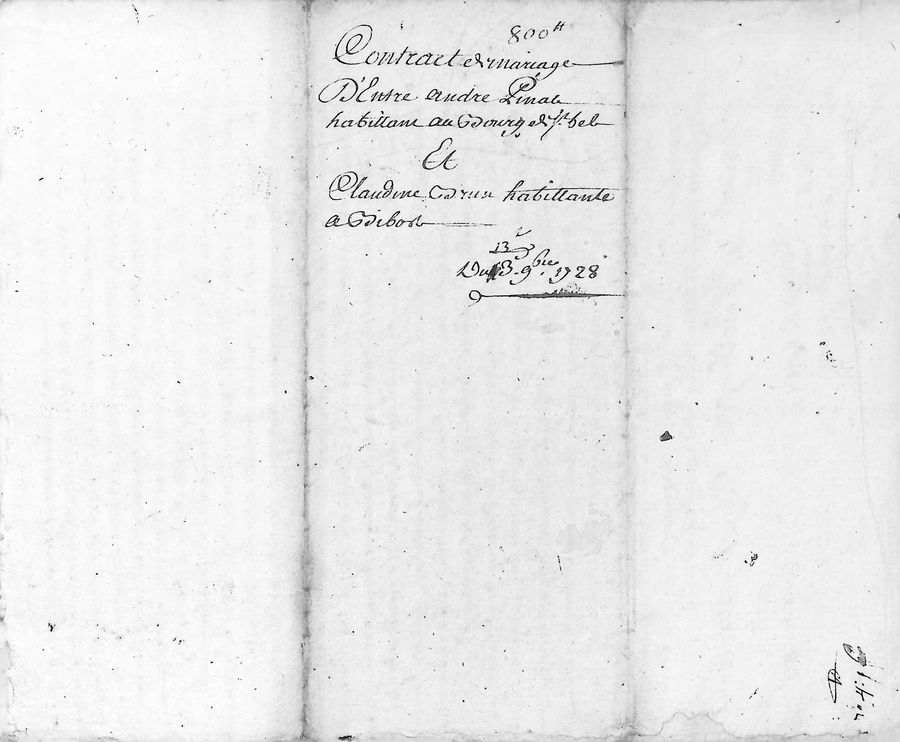 800ᵗᵗ
Contract de mariage
D'Entre andre Pinat
habittant au Bourg de St bel
Et
Claudine Brun habittante
a Bibost
13
Du 13 9bre 1728